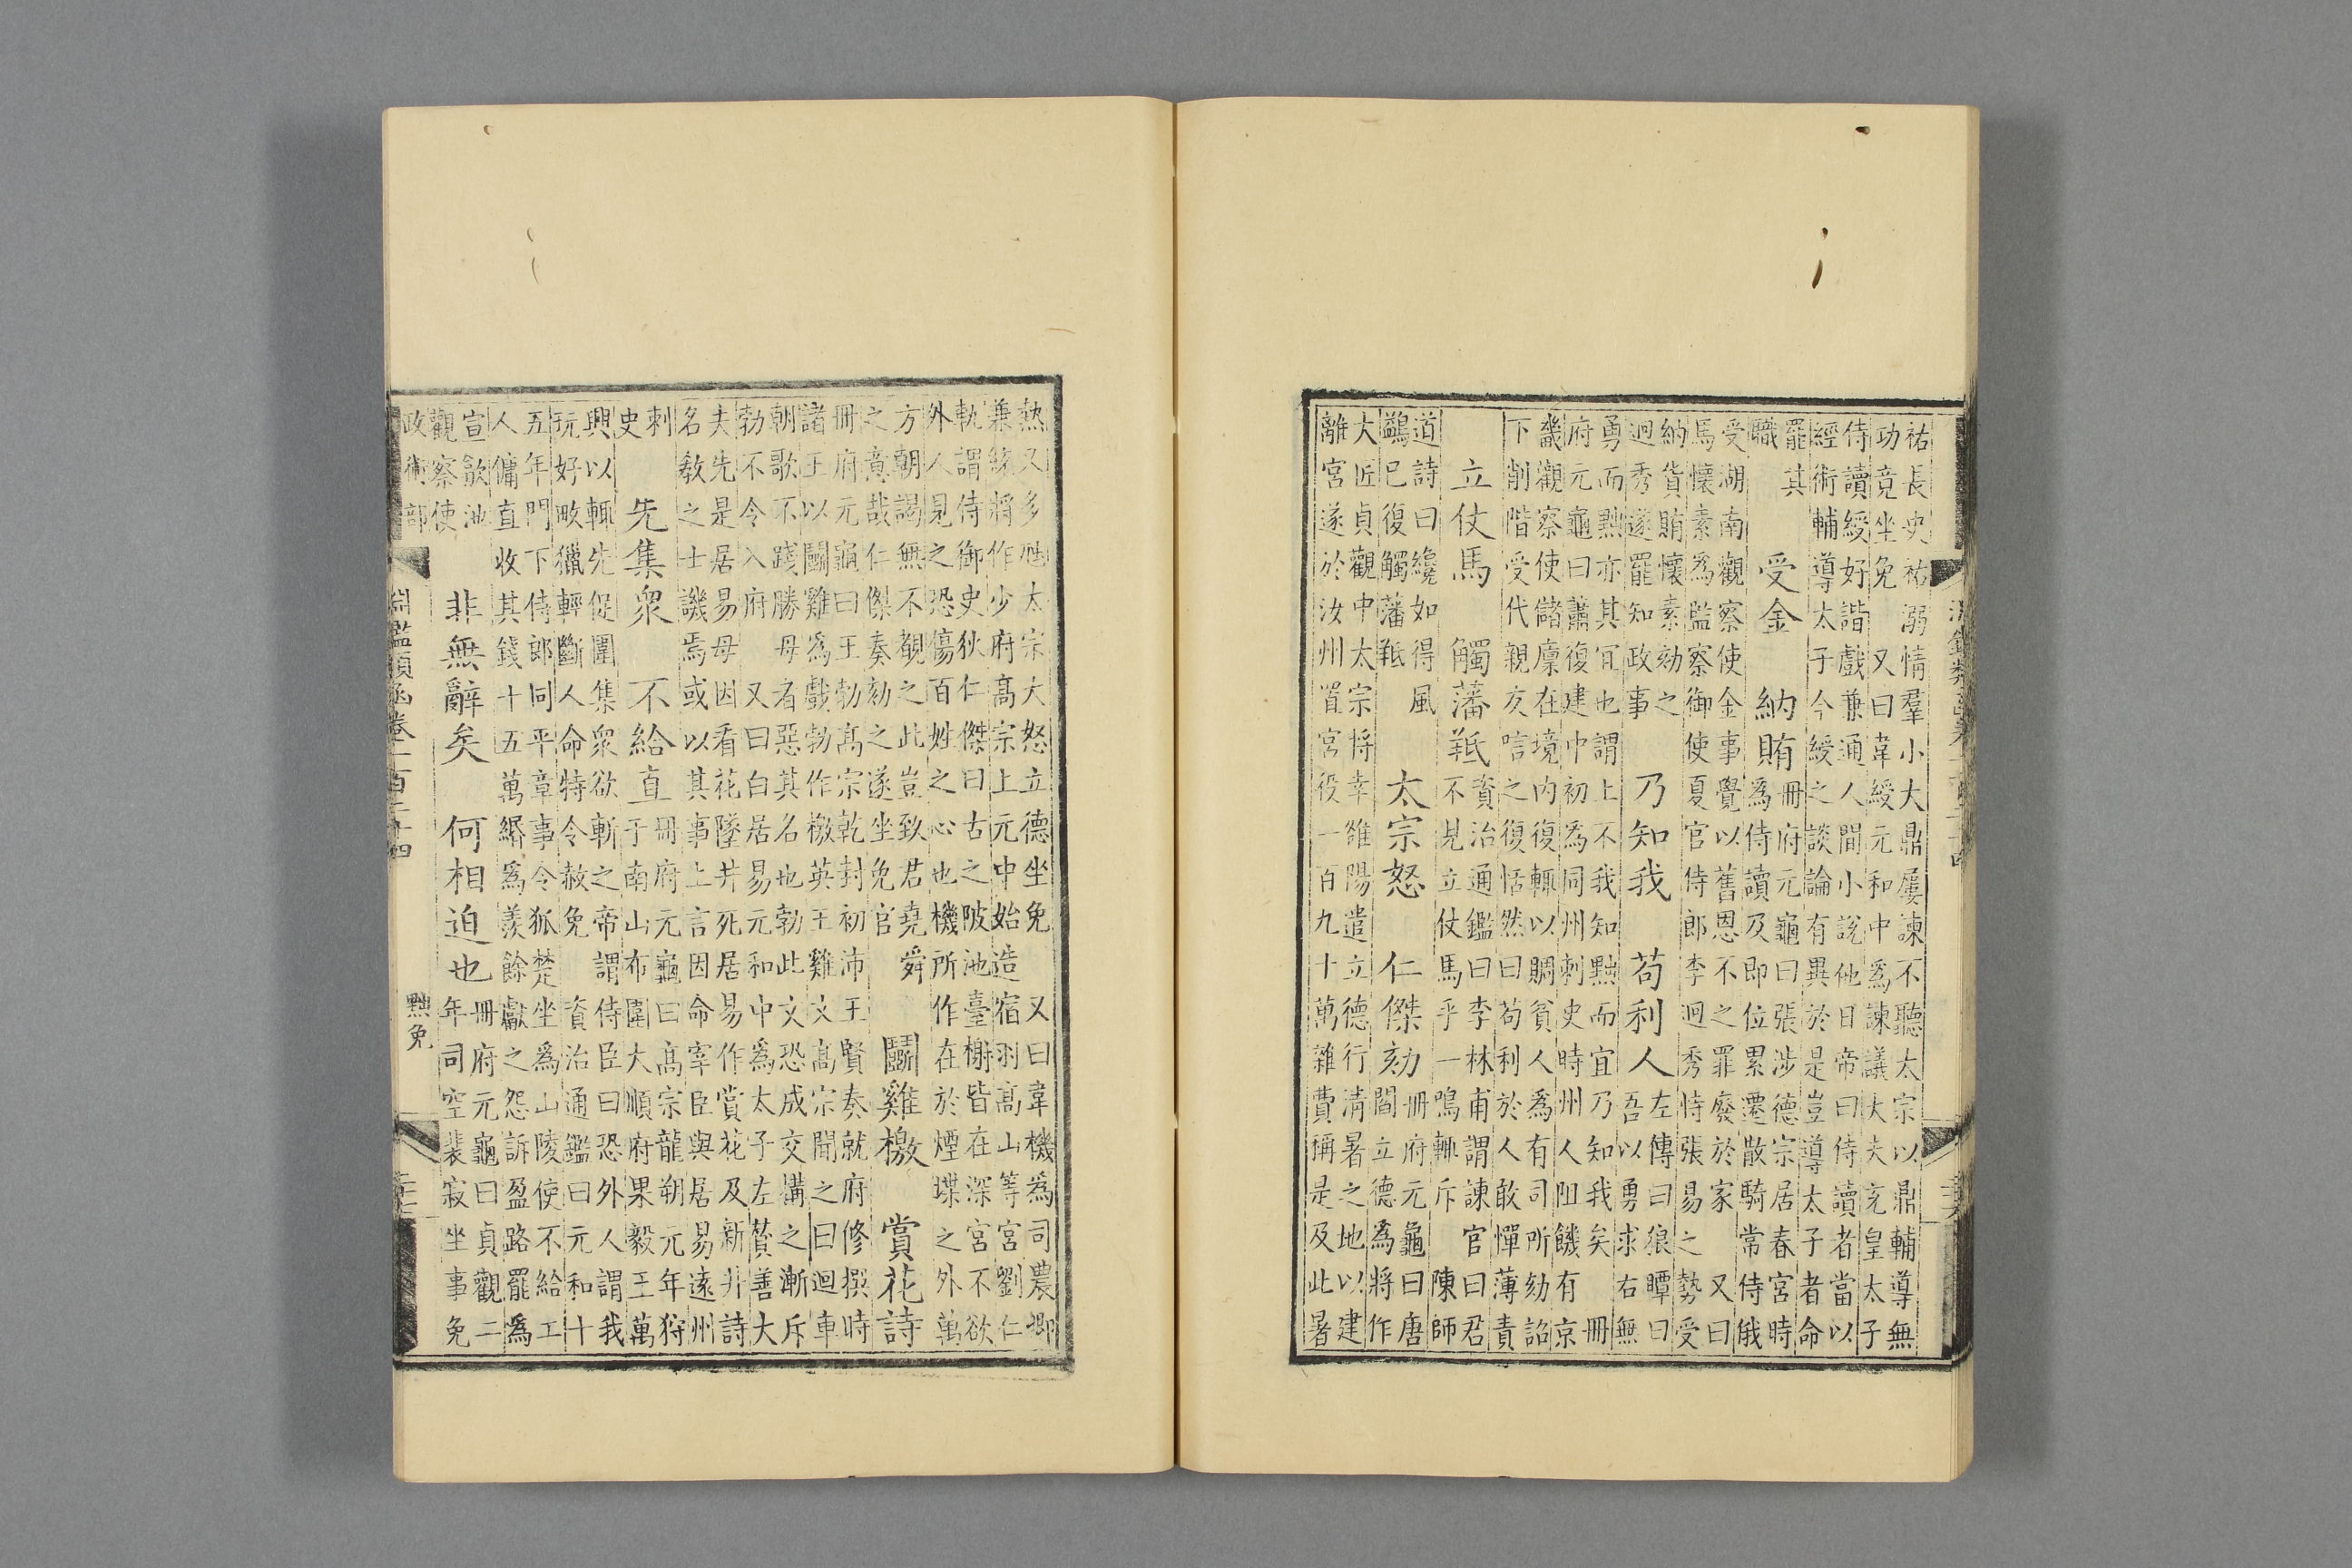 祐長史祐溺情羣小大鼎屢諫不聽太宗以鼎輔導無
功竟坐免 又曰韋綬元和中為諫議大夫充皇太子
侍讀綬好諧戲兼通人間小說他日帝曰侍讀者當以
經術輔導太子今綬之談論有異於是豈導太子者命
罷其
職
受金 納賄
冊府元龜曰張涉德宗居春宮時
為侍讀及即位累遷散騎常侍俄
受湖南觀察使金事覺以舊恩不之罪廢於家 又曰
馬懷素為監察御使夏官侍郎李迥秀恃張易之勢受
納貨賄懷素劾之
迥秀遂罷知政事
乃知我 苟利人
左傳曰狼瞫曰
吾以勇求右無
勇而黜亦其宜也謂上不我知黜而宜乃知我矣 冊
府元龜曰蕭復建中初為同州刺史時州人阻饑有京
畿觀察使儲廩在境內復輒以賙貧人為有司所劾詔
下削階受代親友唁之復恬然曰苟利於人敢憚薄責
立仗馬 觸藩羝
資治通鑑曰李林甫謂諫官曰君
不見立仗馬乎一鳴輒斥 陳師
道詩曰纔如得風
鷁已復觸藩羝
太宗怒 仁傑劾
冊府元龜曰唐
閻立德為將作
大匠貞觀中太宗將幸雒陽遣立德行清暑之地以建
離宮遂於汝州置宮役一百九十萬雜費稱是及此暑
熱又多虺太宗大怒立德坐免 又曰韋機為司農卿
兼統將作少府高宗上元中始造宿羽高山等宮劉仁
軌謂侍御史狄仁傑曰古之陂池臺榭皆在深宮不欲
外人見之恐傷百姓之心也機所作在於煙堞之外萬
方朝謁無不觀之此豈致君堯舜
之意哉仁傑奏劾之遂坐免官
鬭雞檄 賞花詩
冊府元龜曰王勃高宗乾封初沛王賢奏就府修撰時
諸王以鬭雞為戲勃作檄英王雞文高宗聞之曰迴車
朝歌不踐勝母者惡其名也勃此文恐成交構之漸斥
勃不令入府 又曰白居易元和中為太子左贊善大
夫先是居易母因看花墜井死居易作賞花及新井詩
名教之士譏焉或以其事上言因命宰臣與居易遠州
刺
史
先集衆 不給直
冊府元龜曰高宗龍朔元年狩
于南山布圍大順府果毅王萬
興以輒先促圍集衆欲斬之帝謂侍臣曰恐外人謂我
玩好畋獵輕斷人命特令赦免 資治通鑑曰元和十
五年門下侍郎同平章事令狐楚坐為山陵使不給工
人傭直收其錢十五萬緡為羨餘獻之怨訴盈路罷為
宣歙池
觀察使
非無辭矣 何相迫也
冊府元龜曰貞觀二
年司空裴寂坐事免
政術部
淵鑑類函卷一百二十四
黜免